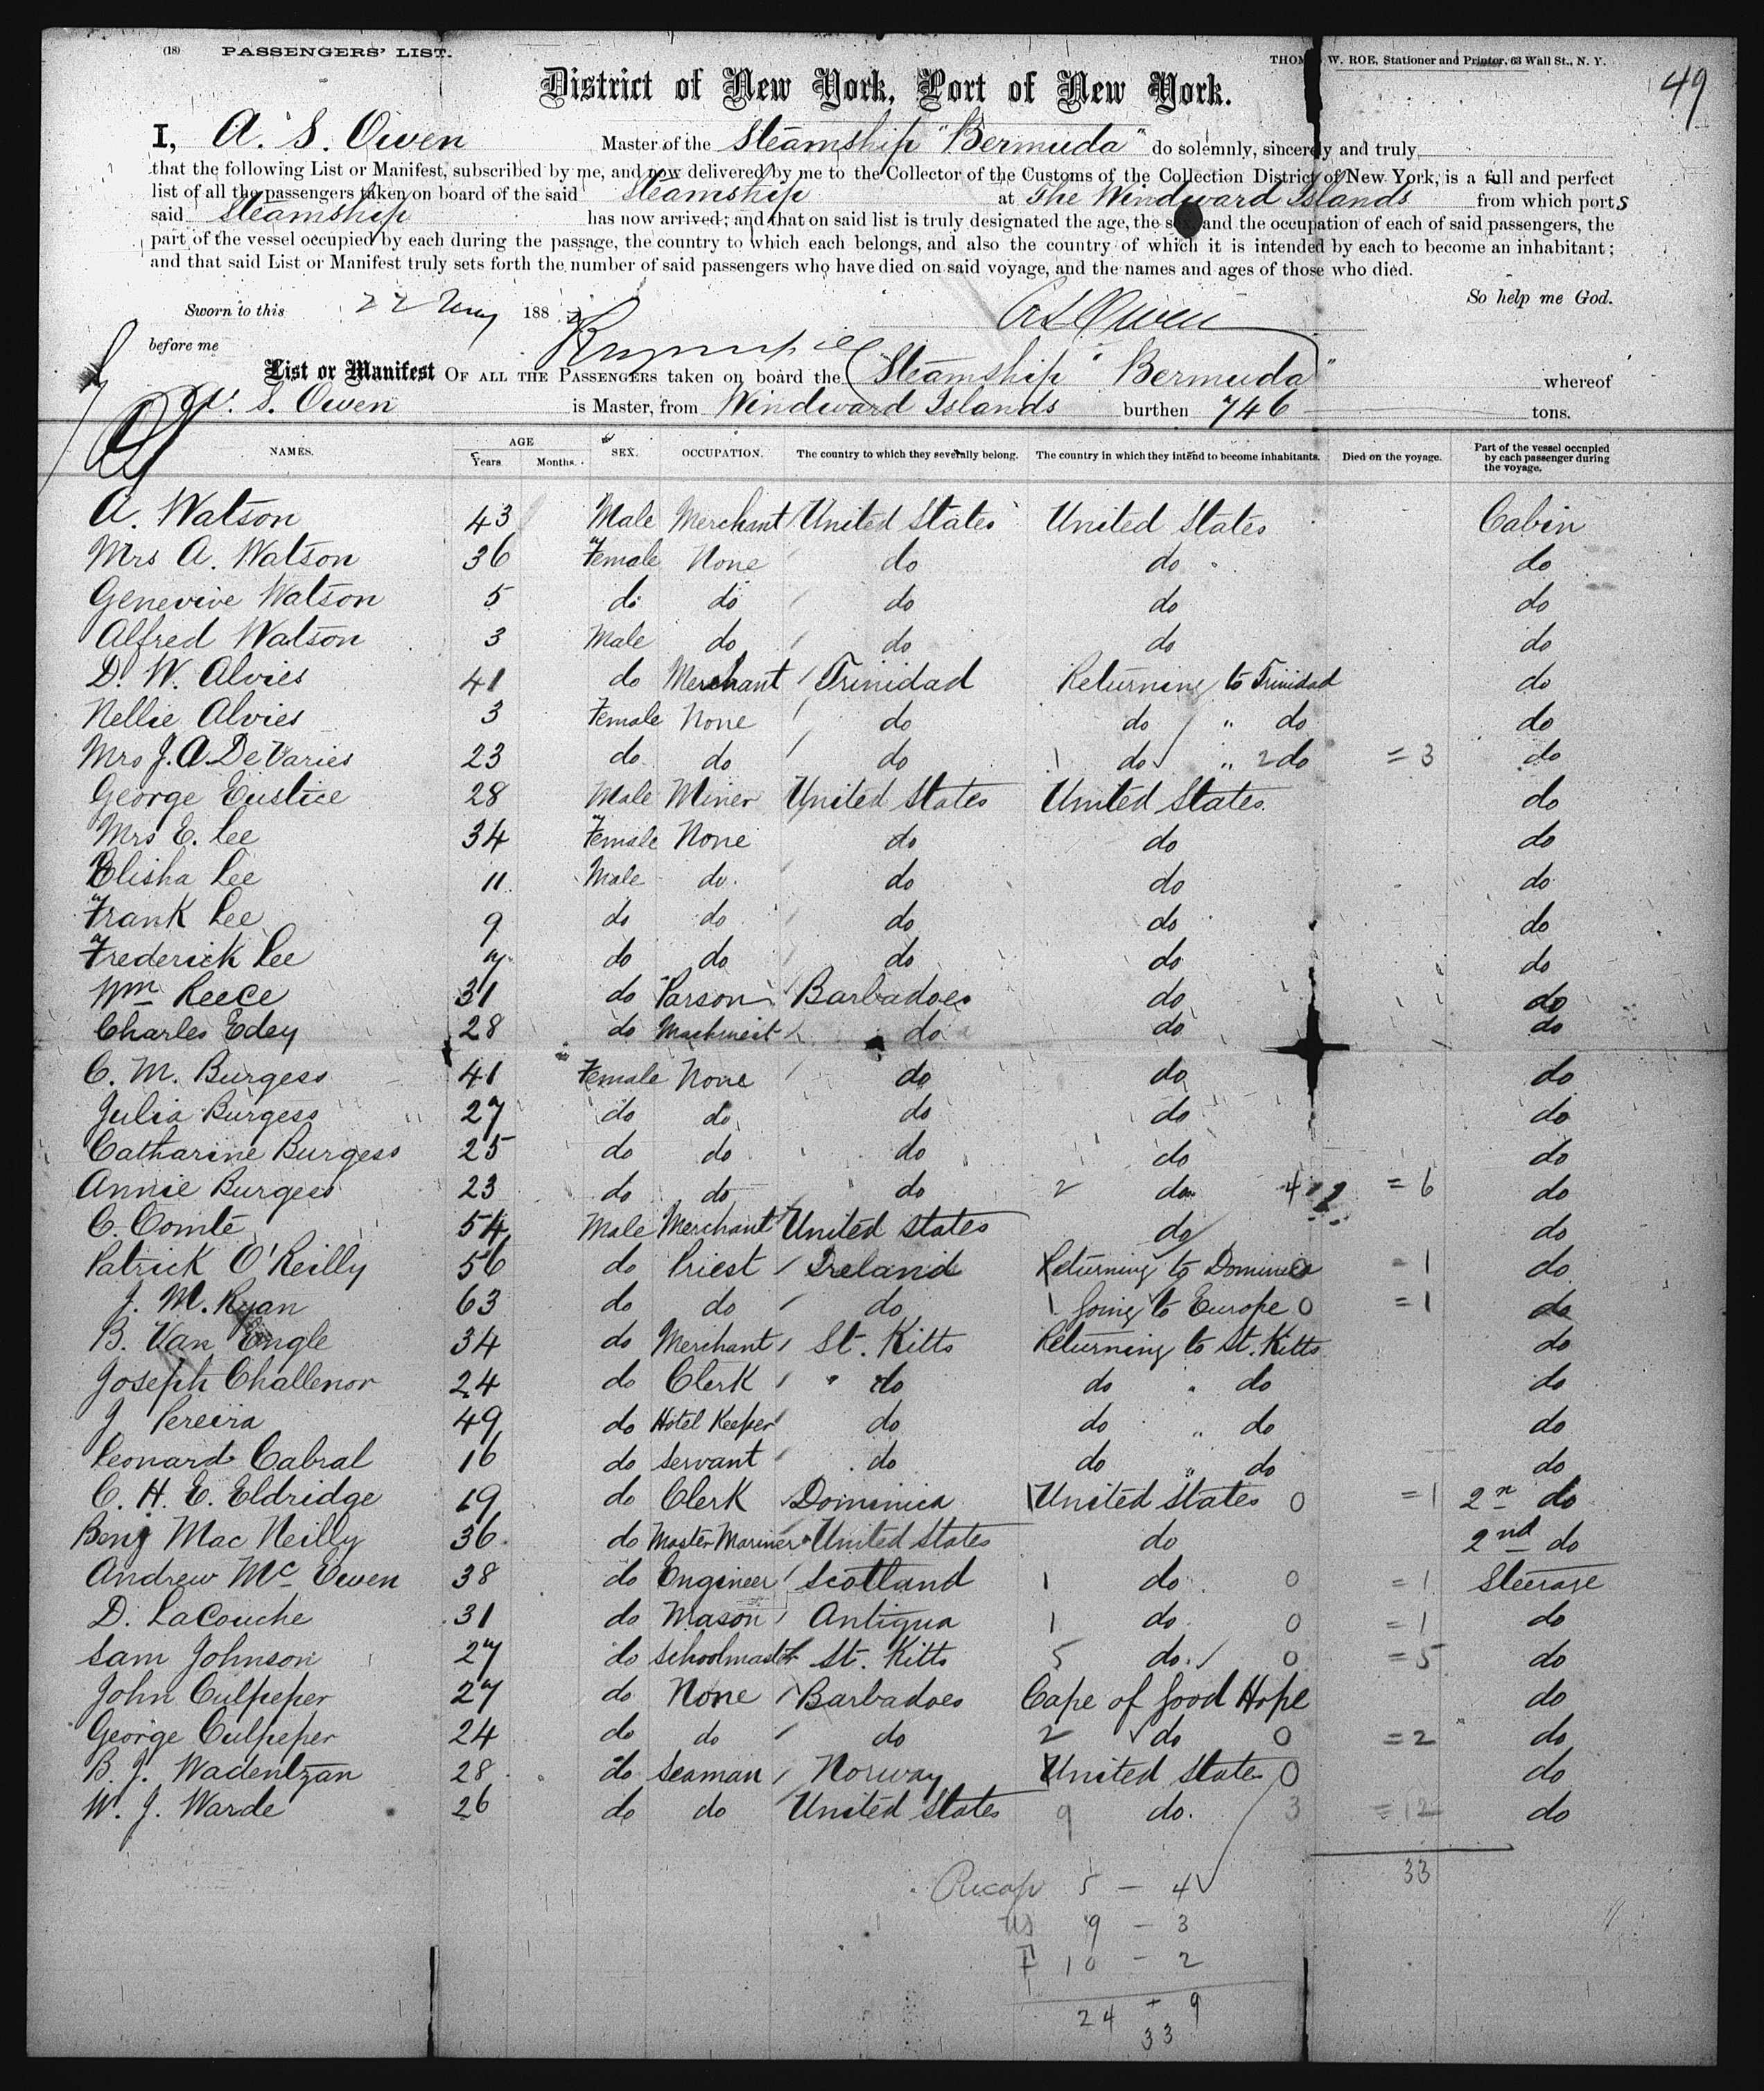 (18) PASSENGERS' LIST.
THOMAS W. ROE, Stationer and Printer, 63 Wall St., N. Y.
49
District of New York, Port of New York.
I, A. S. Owen Master of the Steamship "Bermuda" do solemnly, sincerely and truly
that the following List or Manifest, subscribed by me, and now delivered by me to the Collector of the Customs of the Collection District of New York, is a full and perfect
list of all the passengers taken on board of the said Steamship at The Windward Islands from which ports
said Steamship has now arrived; and that on said list is truly designated the age, the sex, and the occupation of each of said passengers, the
part of the vessel occupied by each during the passage, the country to which each belongs, and also the country of which it is intended by each to become an inhabitant;
and that said List or Manifest truly sets forth the number of said passengers who have died on said voyage, and the names and ages of those who died.
So help me God.
Sworn to this 22 188
A S Owen
before me
List or Manifest OF ALL THE PASSENGERS taken on board the Steamship "Bermuda" whereof
S. Owen is Master, from Windward Islands burthen 746 tons.
NAMES. AGE Years. Months. SEX. OCCUPATION. The country to which they severally belong. The country in which they intend to become inhabitants. Died on the voyage. Part of the vessel occupied by each passenger during the voyage.
A. Watson 43 Male Merchant United States United States Cabin
Mrs A. Watson 36 Female None do do do
Genevive Watson 5 do do do do do
Alfred Watson 3 Male do do do do
D. W. Alvies 41 do Merchant Trinidad Returning to Trinidad do
Nellie Alvies 3 Female None do do " do do
Mrs J. A DeVaries 23 do do do 1 do " 2 do = 3 do
George Eustice 28 Male Miner United States United States. do
Mrs E. Lee 34 Female None do do do
Elisha Lee 11 Male do. do do do
Frank Lee 9 do do do do do
Frederick Lee 7 do do do do do
Wm Reece 31 do Parson Barbadoes do do
Charles Edey 28 do Machinist do do do
C. M. Burgess 41 Female None do do do
Julia Burgess 27 do do do do do
Catharine Burgess 25 do do do do do
Annie Burgess 23 do do do 2 do 4 = 6 do
C. Comte 54 Male Merchant United States do do
Patrick O'Reilly 56 do Priest Ireland Returning to Dominica = 1 do
J. M. Ryan 63 do do do 1 Going to Europe 0 = 1 do
B. Van Engle 34 do Merchant St. Kitts Returning to St. Kitts do
Joseph Challenor 24 do Clerk " do do " do do
J Pereira 49 do Hotel Keeper do do " do do
Leonard Cabral 16 do Servant do do " do do
C. H. E. Eldridge 19 do Clerk Dominica 1 United States 0 = 1 2n do
Benj Mac Neilly 36 do Master Mariner United States do 2nd do
Andrew Mc Ewen 38 do Engineer Scotland 1 do 0 = 1 Steerage
D. LaCouche 31 do Mason Antigua 1 do 0 = 1 do
Sam Johnson 27 do Schoolmaster St. Kitts 5 do. 0 = 5 do
John Culpeper 27 do None Barbadoes Cape of Good Hope do
George Culpeper 24 do do do 2 do 0 = 2 do
B. J. Wadentzan 28 do Seaman Norway United States 0 do
W. J. Warde 26 do do United States 9 do. 3 = 12 do
33
Recap 5 - 4
US 9 - 3
F 10 - 2
24 + 9
33